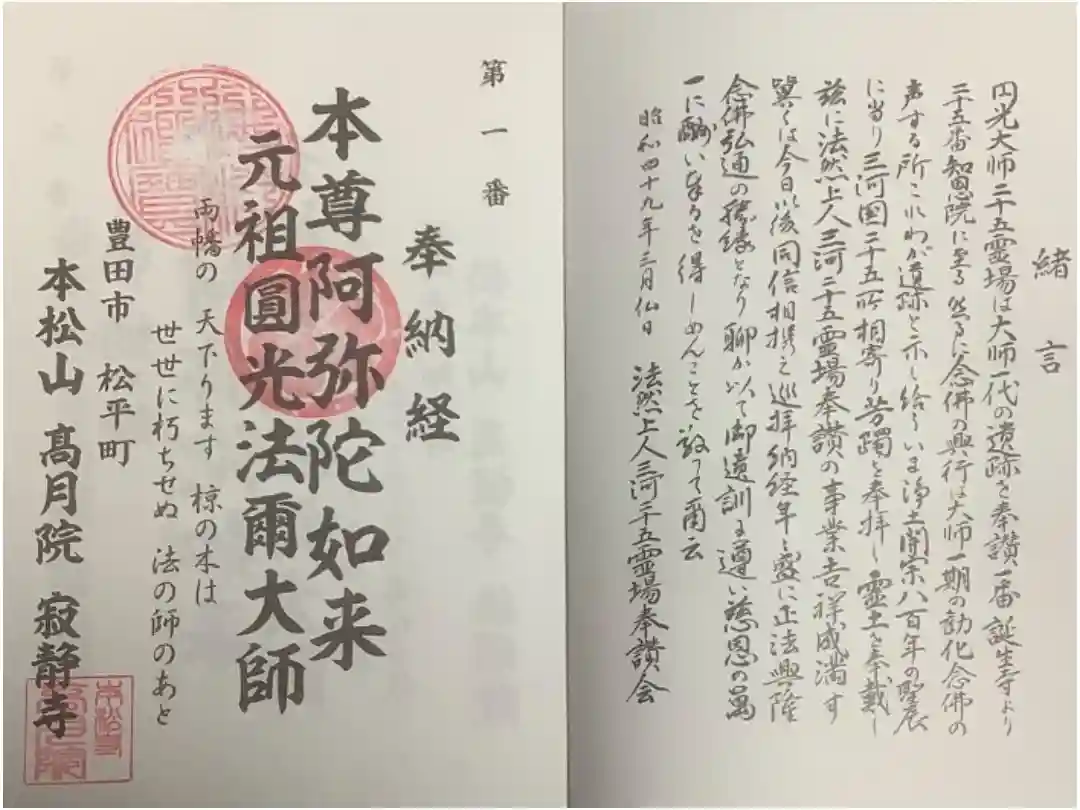 緒言
円光大师二十五霊場は大师一代の遺跡を奉讃一番誕生寺より
二十五番知恩院に至る然るに念佛の興行は大师一期の勧化念佛の
声する所これわが遺跡と示し給ういま浄土開宗八百年の聖辰
に当り三河国二十五ヶ所相寄り芳躅を奉拝し霊土を奉戴し
茲に法然上人三河二十五霊場奉讃の事業吉祥成満す
冀くは今日以後同信相携え巡拝納経年と盛に正法興隆
念佛弘通の勝縁となり聊か以て御遺訓に遵い慈恩の萬
一に酬い奉るを得しめんことを敬って爾云
昭和四十九年三月仏日　法然上人三河二十五霊場奉讃会
第一番
奉納経
本尊阿弥陀如来
元祖圓光法爾大師
両幡の　天下ります　椋の木は
世世に朽ちせぬ　法の師のあと
豊田市　松平町
本松山　髙月院　寂静寺